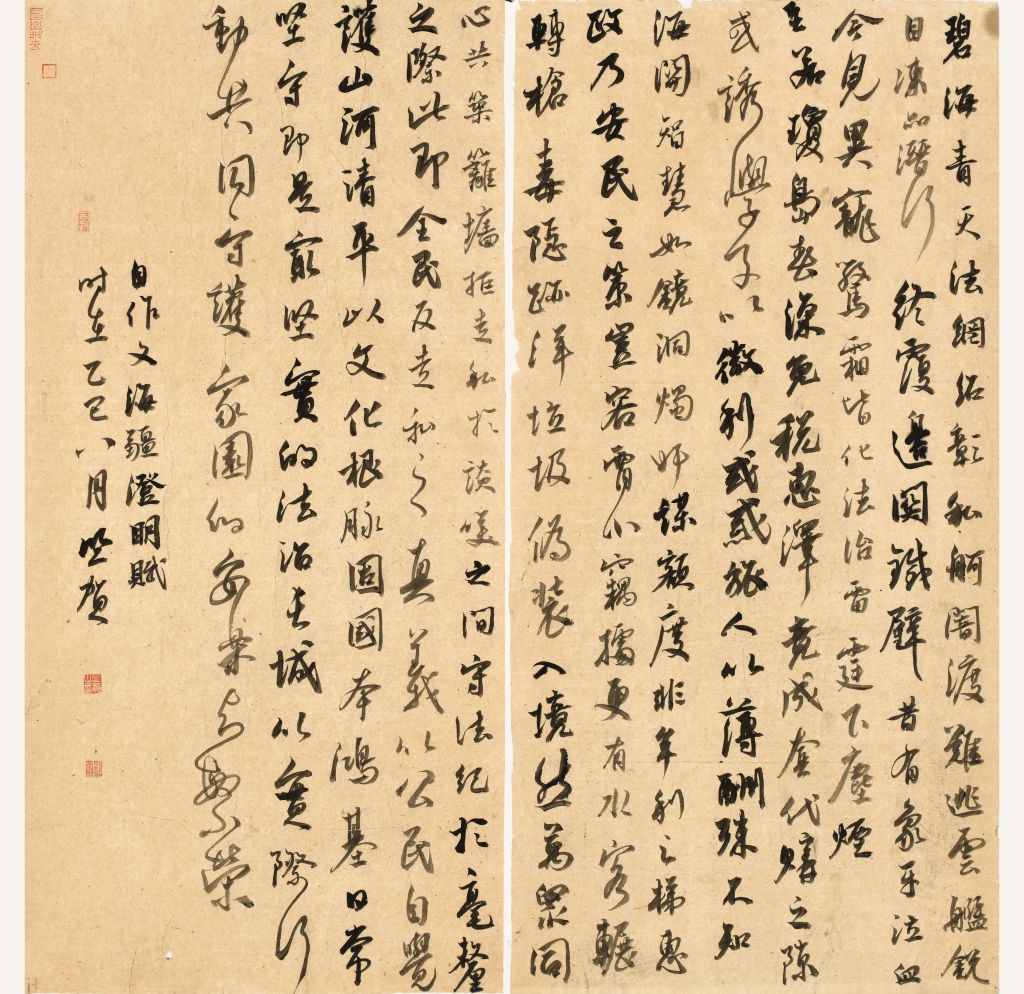 碧海青天法網紹彰私舸闇渡難逃雲艦銳
目凍品潛行終覆邊關鐵壁昔有象牙泣血
今見異寵驚霜皆化法治雷霆下塵煙
至若瓊島春深免稅惠澤竟成套代購之隙
或誘學子以微利或惑旅人以薄酬殊不知
海關智慧如鏡洞燭奸謀額度非牟利之梯惠
政乃安民之策豈容宵小更有水客輾
轉槍毒隱跡洋垃圾偽裝入境然萬眾同
心共築籬墻拒走私於談笑之間守法紀於毫釐
之際此即全民反走私之真義以公民自覺
護山河清平以文化根脈固國本鴻基日常
坚守即是最坚實的法治长城以實際行
動共同守護家園的安寧与繁榮
自作文海疆澄明賦
时在乙巳八月贺